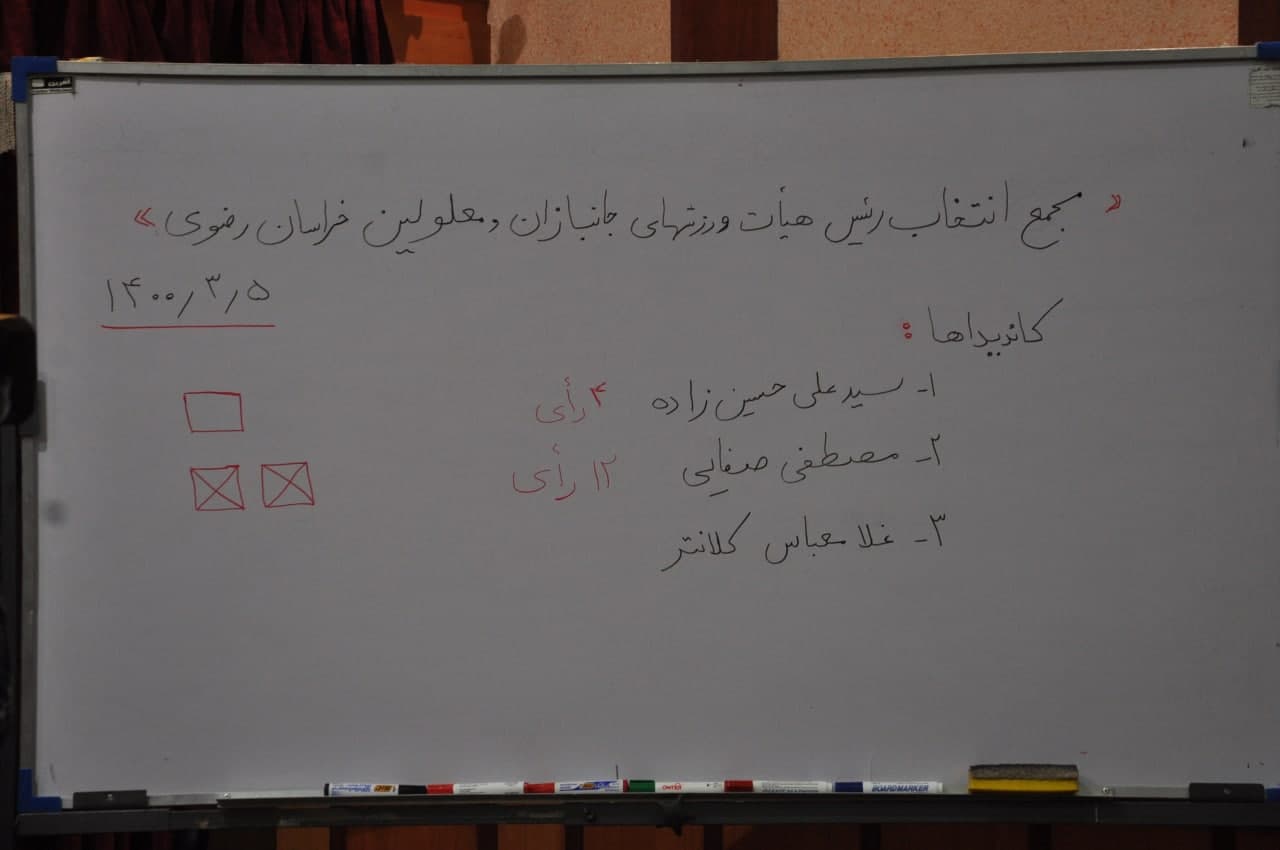 « مجمع انتخاب رئیس هیأت ورزشهای جانبازان و معلولین خراسان رضوی »
۱۴۰۰/۳/۵
کاندیداها :
۱- سید علی حسین زاده ۴ رأی
۲- مصطفی صفایی ۱۲ رأی
۳- غلامعباس کلانتر
BOARD MARKER